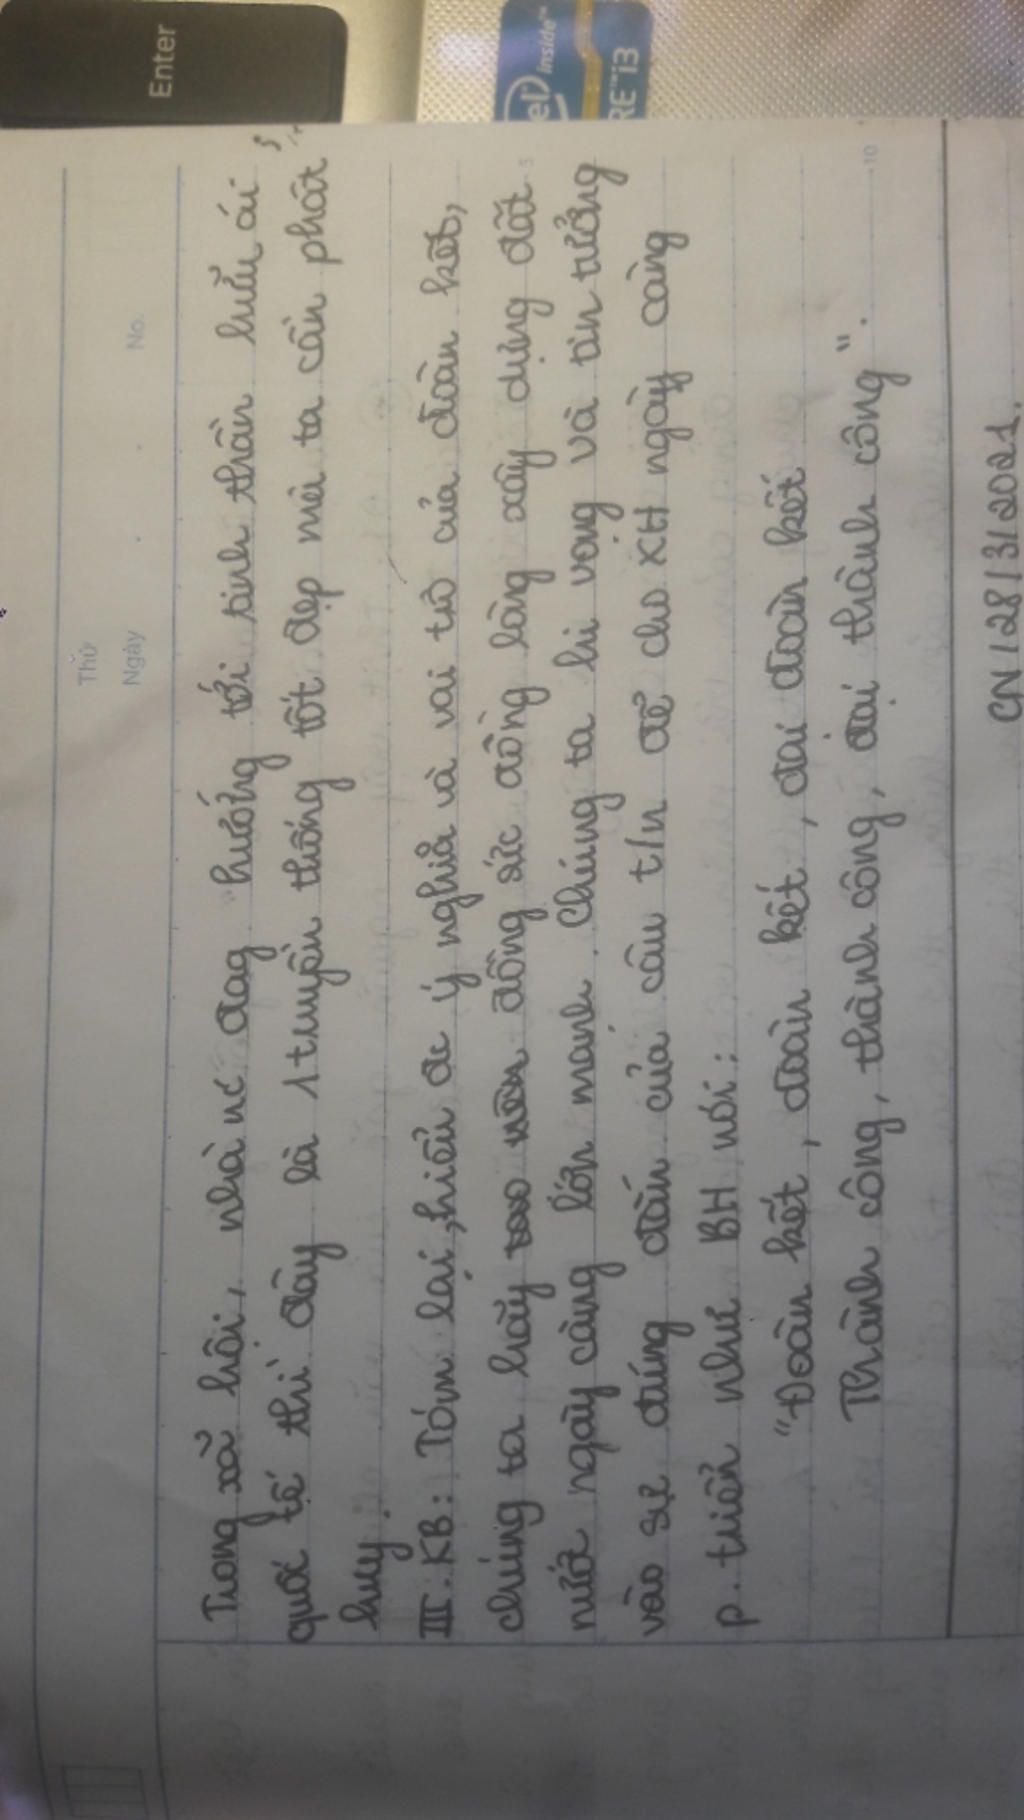 Enter
intel inside™
CORE™i3
Thứ
Ngày . . No.
Trong xã hội, nhà nc đag hướng tới tinh thần hữu ái
quốc tế thì đây là 1 truyền thống tốt đẹp mà ta cần phát
huy.
III. KB: Tóm lại, hiểu đc ý nghĩa và vai trò của đoàn kết,
chúng ta hãy đồng sức đồng lòng xây dựng đất 5
nước ngày càng lớn mạnh. Chúng ta hi vọng và tin tưởng
vào sự đúng đắn của câu t/n để cho XH ngày càng
p. triển như BH nói:
"Đoàn kết, đoàn kết, đại đoàn kết
Thành công, thành công, đại thành công". 10
CN/28/3/2021.